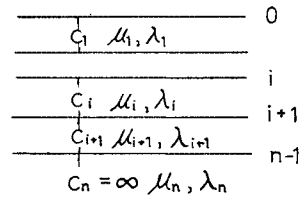 0
C₁ μ₁, λ₁
i
Cᵢ μᵢ, λᵢ
i+1
Cᵢ₊₁ μᵢ₊₁, λᵢ₊₁
n-1
Cₙ = ∞ μₙ, λₙ